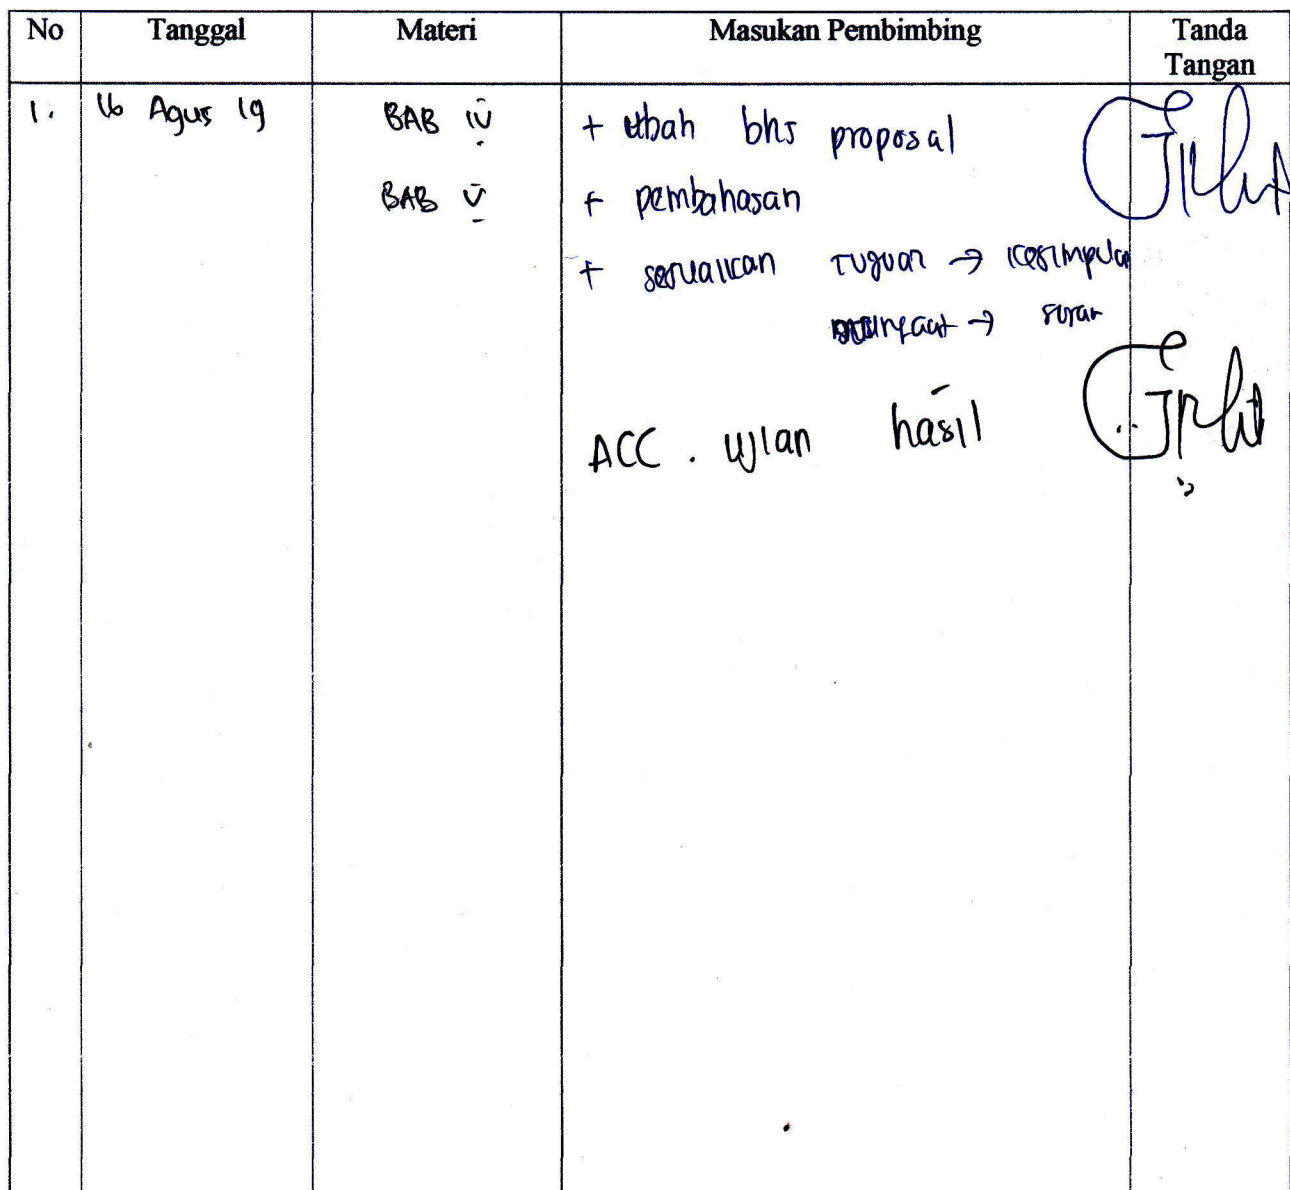 No Tanggal Materi Masukan Pembimbing Tanda Tangan
1. 16 Agus 19 BAB IV + ubah bhs proposal
BAB V + pembahasan
+ sesuaikan tujuan → kesimpulan
manfaat → saran
ACC . ujian hasil